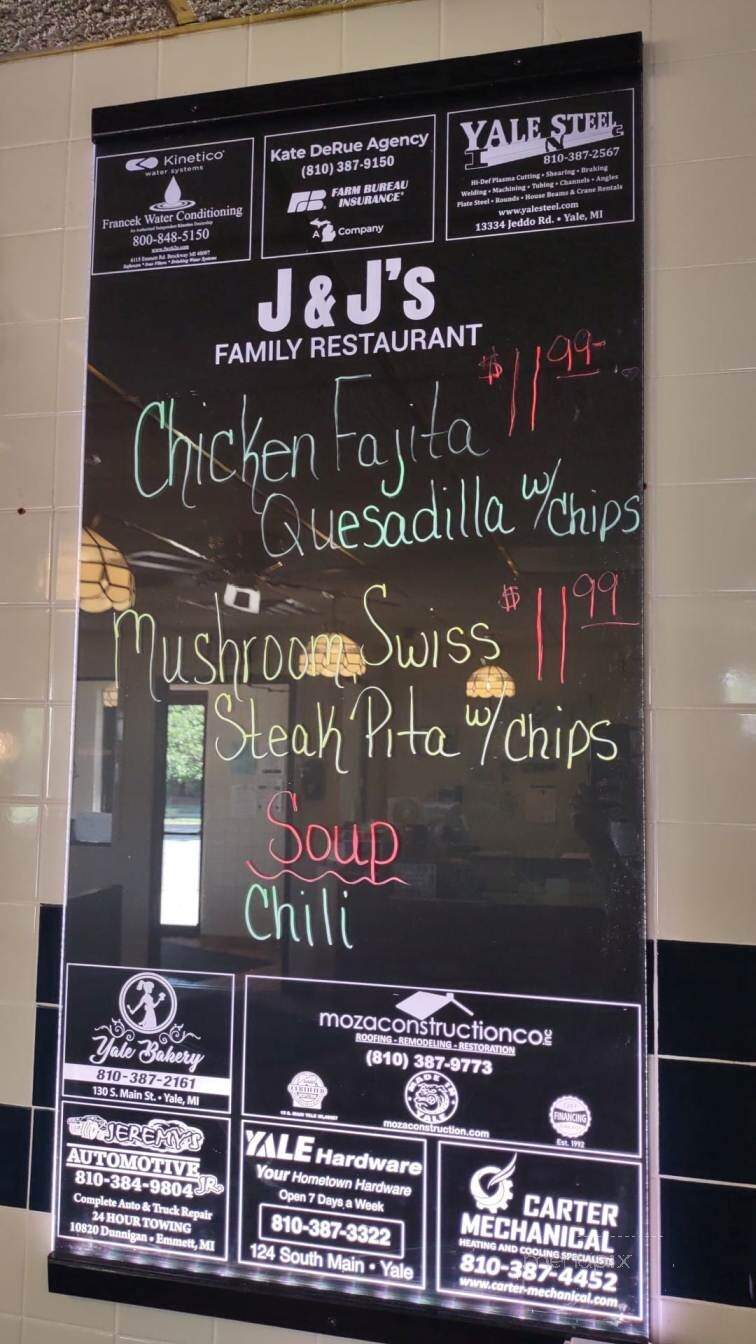 Kinetico
water systems
Francek Water Conditioning
An Authorized Independent Kinetico Dealership
800-848-5150
Kate DeRue Agency
(810) 387-9150
FARM BUREAU
INSURANCE
A Company
YALE STEEL
810-387-2567
Hi-Def Plasma Cutting • Shearing • Braking
Welding • Machining • Tubing • Channels • Angles
Plate Steel • Rounds • House Beams & Crane Rentals
www.yalesteel.com
13334 Jeddo Rd. • Yale, MI
J & J's
FAMILY RESTAURANT
$11 99
Chicken Fajita
Quesadilla w/chips
$11 99
Mushroom Swiss
Steak Pita w/ chips
Soup
Chili
Yale Bakery
810-387-2161
130 S. Main St. • Yale, MI
mozaconstructionco inc
ROOFING - REMODELING - RESTORATION
(810) 387-9773
CERTIFIED
MADE IN
YALE
FINANCING
Est. 1992
mozaconstruction.com
JEREMY'S
AUTOMOTIVE
810-384-9804 JR
Complete Auto & Truck Repair
24 HOUR TOWING
10820 Dunnigan • Emmett, MI
YALE Hardware
Your Hometown Hardware
Open 7 Days a Week
810-387-3322
124 South Main • Yale
CARTER
MECHANICAL
HEATING AND COOLING SPECIALISTS
810-387-4452
www.carter-mechanical.com
menupix